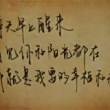 每天早上醒来
看见你和阳光都在
那就是我要的幸福和未来